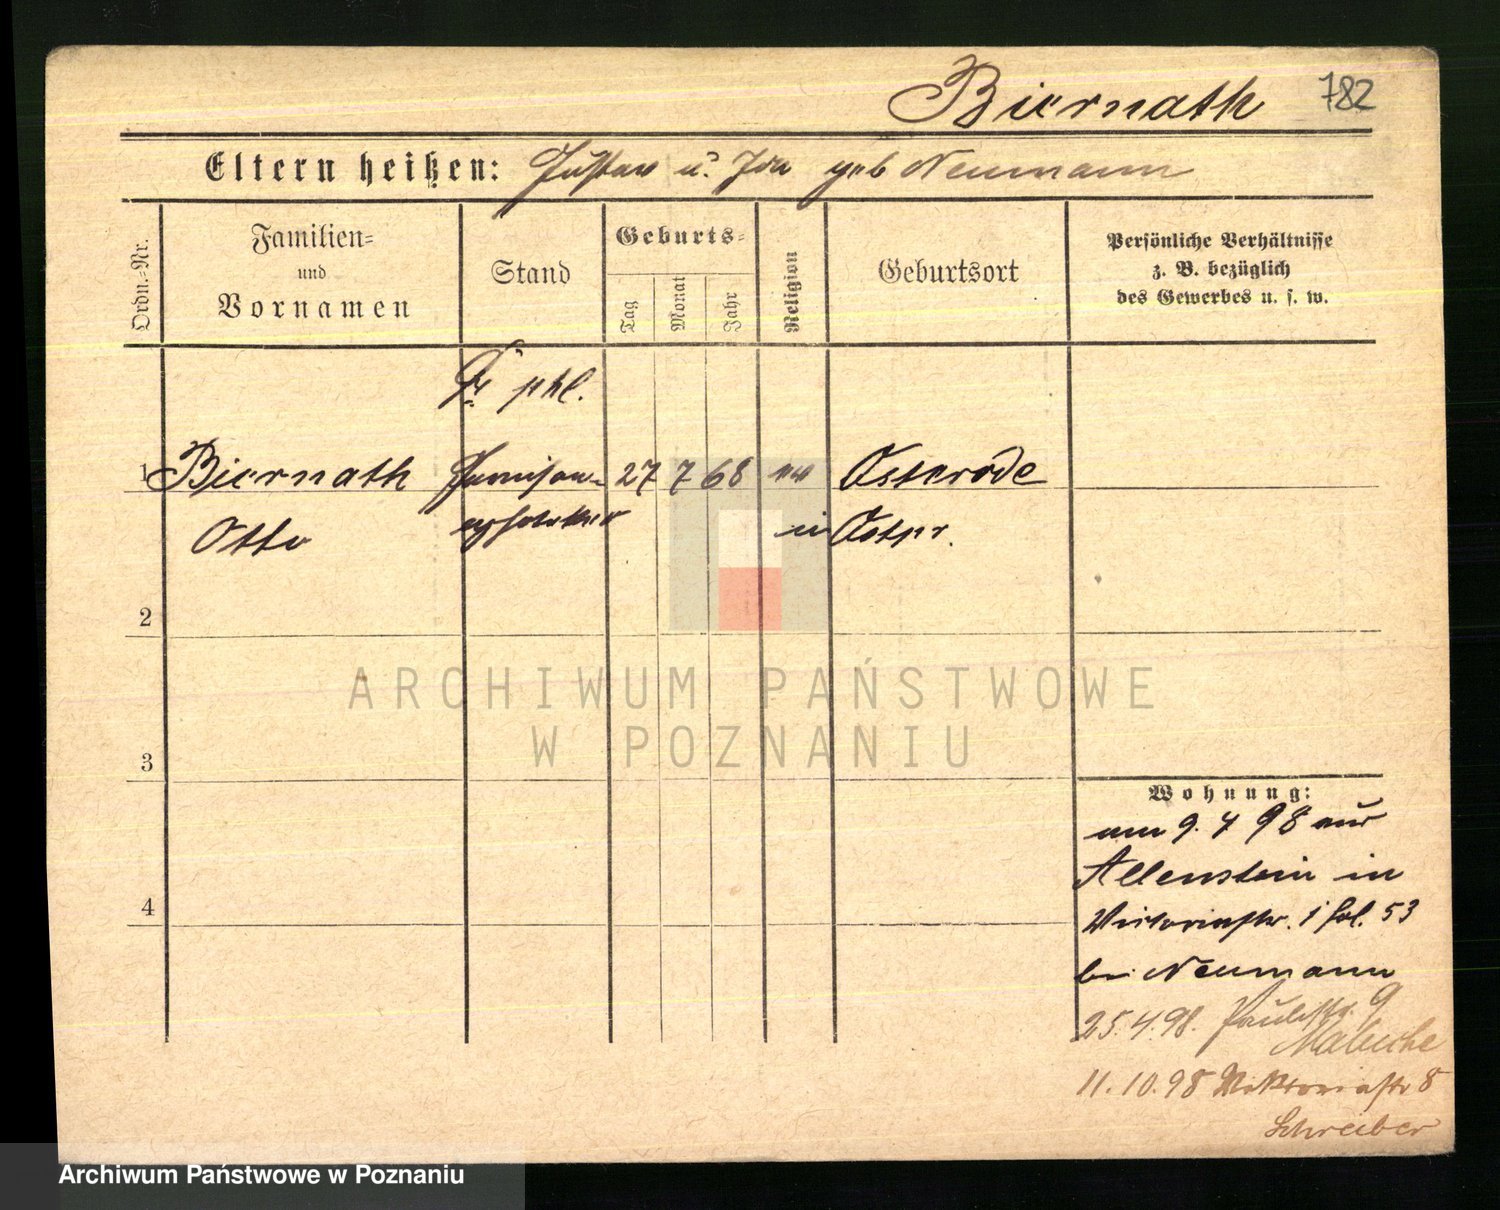 Biernath 782
Eltern heißen: Gustav u. Ida geb Neumann
Ordn.=Nr.
Familien=
und
Vornamen
Stand
Geburts=
Tag
Monat
Jahr
Religion
Geburtsort
Persönliche Verhältnisse
z. B. bezüglich
des Gewerbes u. s. w.
Dr phil.
1 Biernath Garnison- 27 7 68 ev Osterode
Otto apotheker in Ostpr.
2
3
4
Wohnung:
am 9. 4 98 aus
Allenstein in
Victoriastr. 53
bei Neumann
25.4.98. Paulistr. 9
11.10.98 Viktoriastr 8
Schreiber
ARCHIWUM PAŃSTWOWE
W POZNANIU
Archiwum Państwowe w Poznaniu